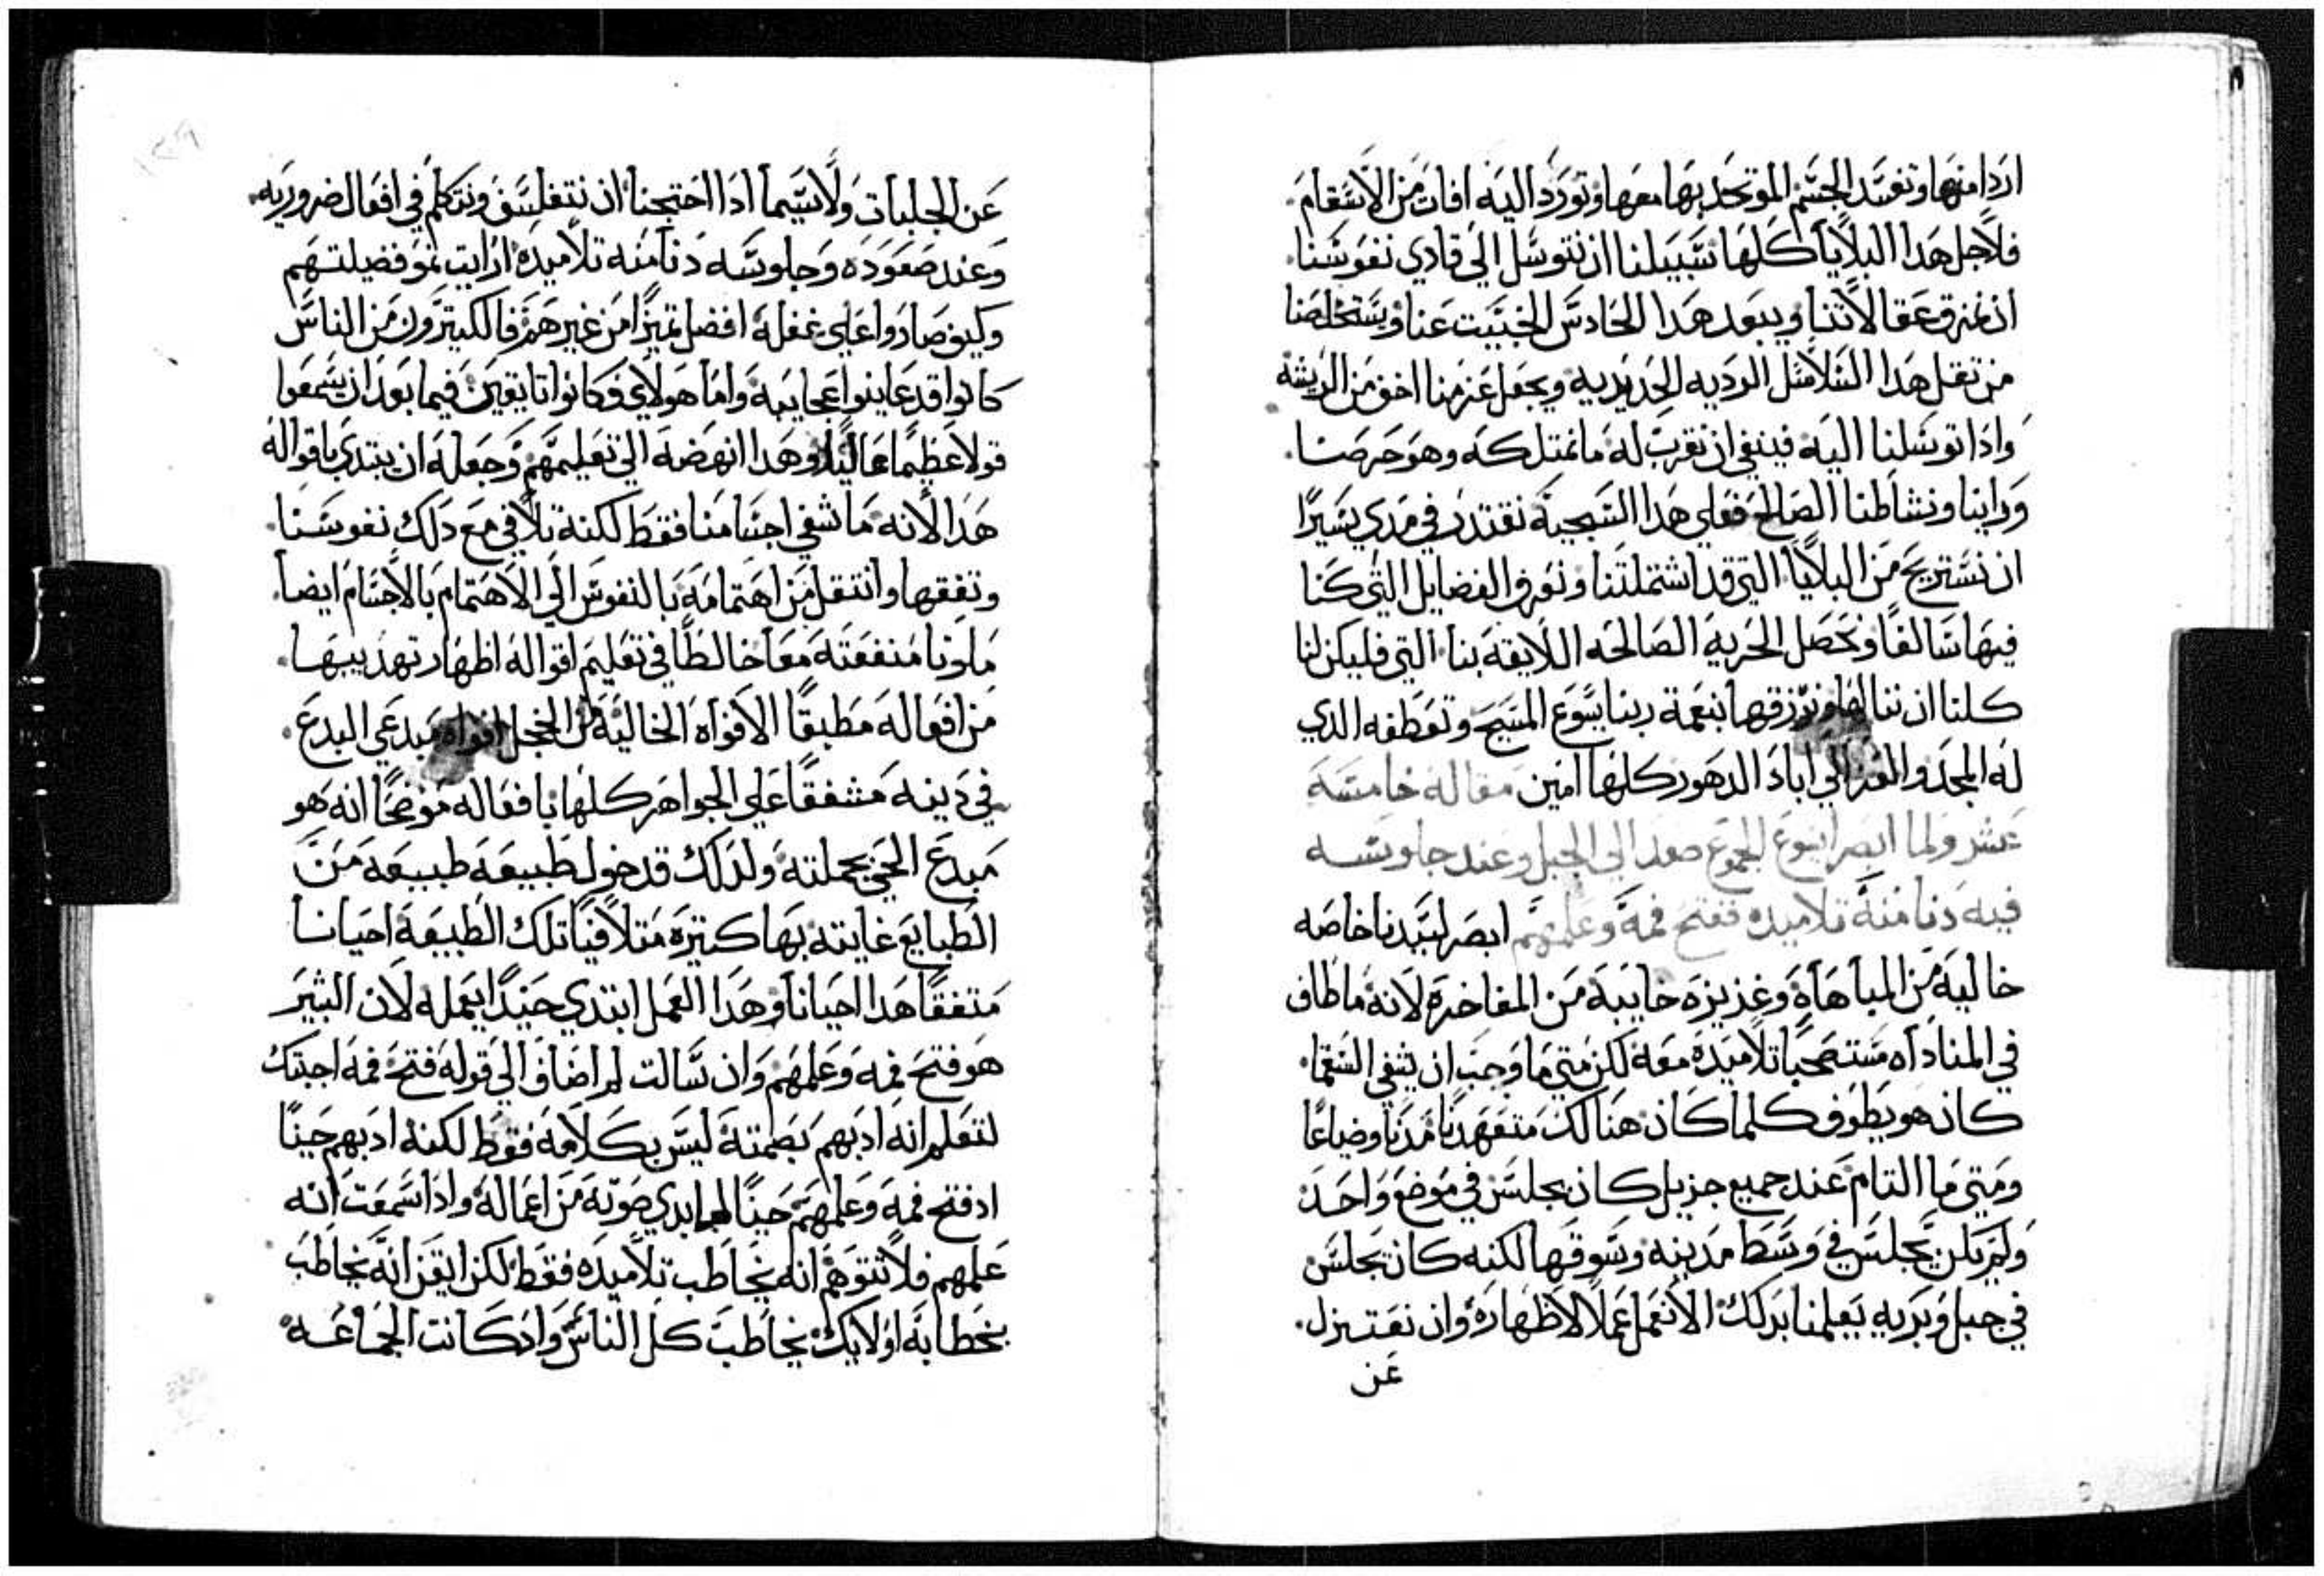 اردا منها وتفسد الجسم المتوحد بها معها وتورد اليه افات من الاسقام
فلاجل هذا البلايا كلها سبيلنا ان نتوسل الي فادي نفوسنا
ان يمزق عقالاتنا ويبعد هذا الحادس الخبيت عنا ويستخلصنا
من تقل هذا السلاسل الرديه الحديديه ويجعل عزمنا اخف من الريشه
وادا توسلنا اليه فينبغي ان نقرب له ما نمتلكه وهو حرصنا
وراينا ونشاطنا الصالح فعلي هدا السجيه نقتدر في مدي يسيرا
ان نستريح من البلايا التي قد اشتملتنا ونعرف الفضايل التي كنا
فيها سالفا ونحصل الحريه الصالحه اللايقه بنا التي فليكن لنا
كلنا ان ننالها ونرزقها بنعمة ربنا يسوع المسيح وتعطفه الدي
له المجد والعز الي اباد الدهور كلها امين مقاله خامسه
عشر ولما ابصر ايسوع الجموع صعد الي الجبل وعند جلوسه
فيه دنا منه تلاميده ففتح فمه وعلمهم ابصر لسيدنا خاصه
خاليه من المباهاه وغزيزه خايبه من المفاخره لانه ما طاف
في المناداه مستصحبا تلاميده معه لكن متي ما وجب ان يشفي السقما
كان هو يطوف كلما كان هنالك متعهدنا مدنا وضياعا
ومتي ما التام عند جميع جزيل كان يجلس في موضع واحد
ولم يكن يجلس في وسط مدينه وسوقها لكنه كان يجلس
في جبل وبريه يعلمنا بدلك الا نعمل عملا لاظهاره وان نعتزل
عن
عن الجلبات ولا سيما ادا احتجنا ان نتفلسف ونتكلم في افعال ضروريه
وعند صعوده وجلوسه دنا منه تلاميده ارايت نمو فضيلتهم
وكيف صاروا علي غفله افضل تميزا من غيرهم فالكتيرون من الناس
كانوا قد عاينوا عجايبه واما هولاي فكانوا تايقين فيما بعد ان يسمعوا
قولا عظيما عاليا وهدا انهضه الي تعليمهم وجعله ان يبتدي باقواله
هدا لانه ما شفي اجسامنا فقط لكنه تلافي مع دلك نفوسنا
وتفقها وانتقل من اهتمامه بالنفوس الي الاهتمام بالاجسام ايضا
ملونا منفعته معا خالطا في تعليم اقواله اظهار تهديبها
من افعاله مطبقا الافواه الخاليه من الخجل افواه مبدعي البدع
في دينه مشفقا علي الجواهر كلها بافعاله موضحا انه هو
مبدع الحي بجملته ولدلك قد خول طبيعه طبيعه من
الطبايع غايته بها كتيره متلافيا تلك الطبيعه احيانا
متفقا هدا احيانا وهدا العمل ابتدي حيندا يعمله لان البشير
هو فتح فمه وعلمهم وان سالت لم اضاف الي قوله فتح فمه اجبتك
لتعلم انه ادبهم بصمته ليس بكلامه فقط لكنه ادبهم حينا
اد فتح فمه وعلمهم حينا لما ابدي صوته من اعماله وادا سمعت انه
علمهم فلا تتوهم انه يخاطب تلاميده فقط لكن ايقن انه يخاطب
بخطابه اولايك يخاطب كل الناس واد كانت الجماعه